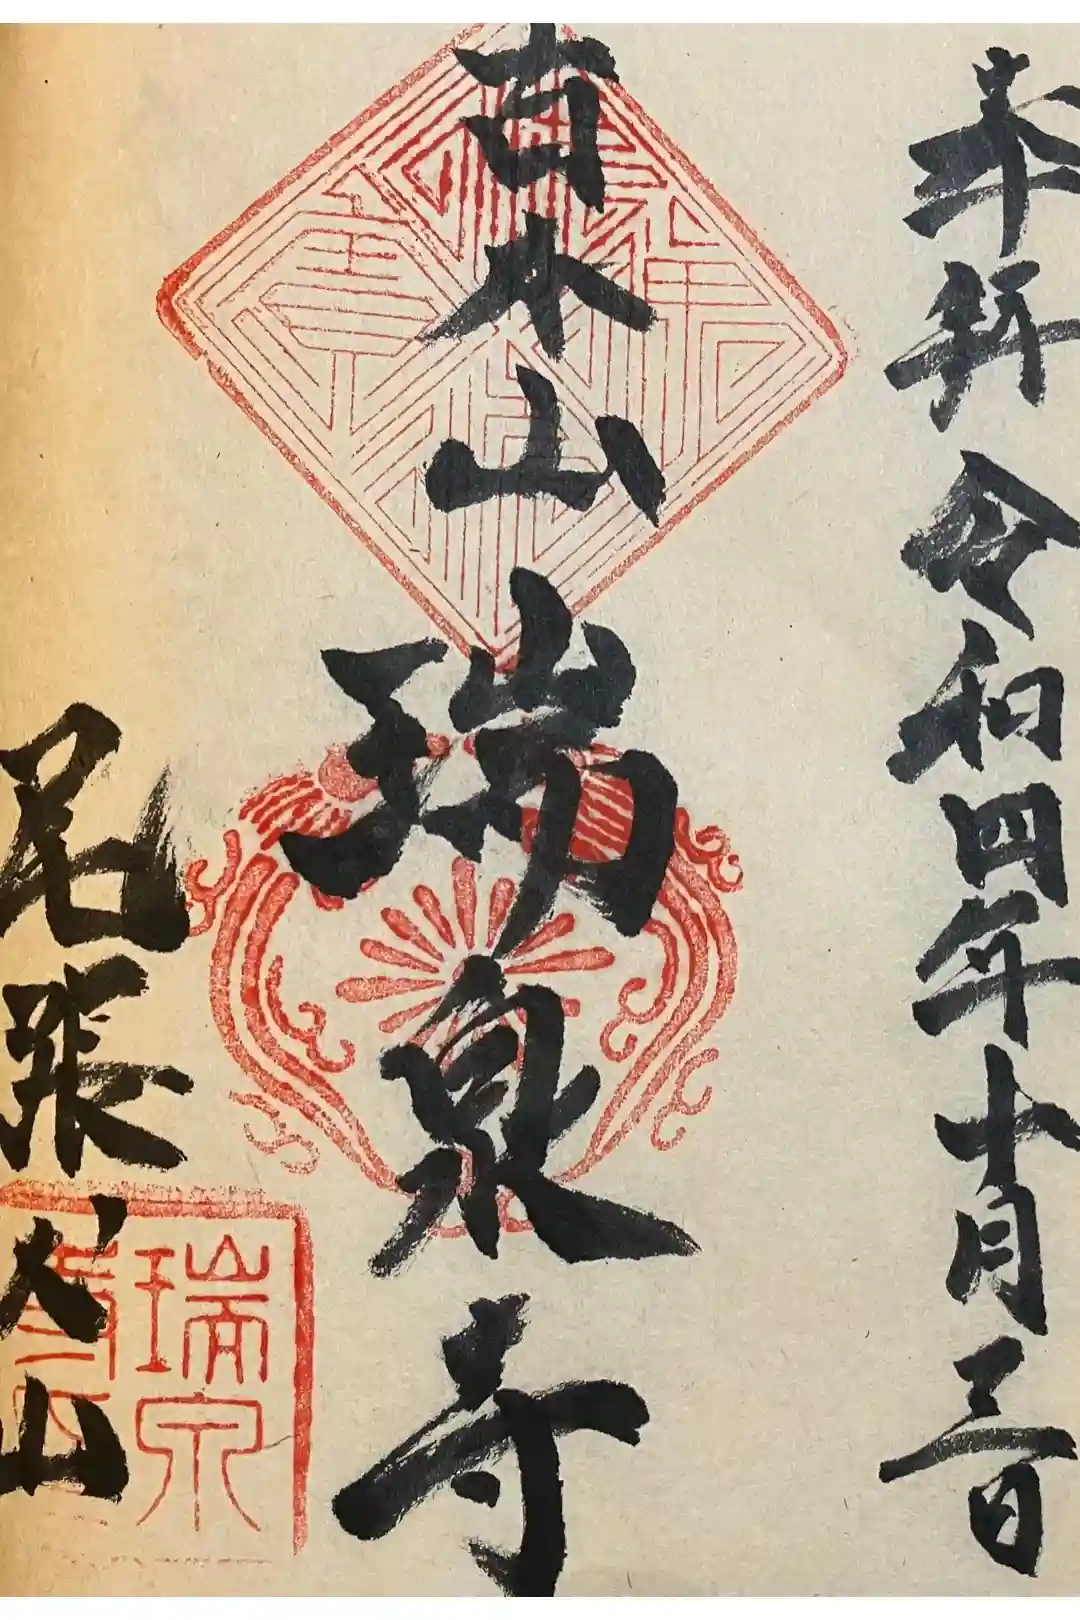 奉拝 令和四年十月三日
山 瑞泉寺
尾張犬山
瑞泉